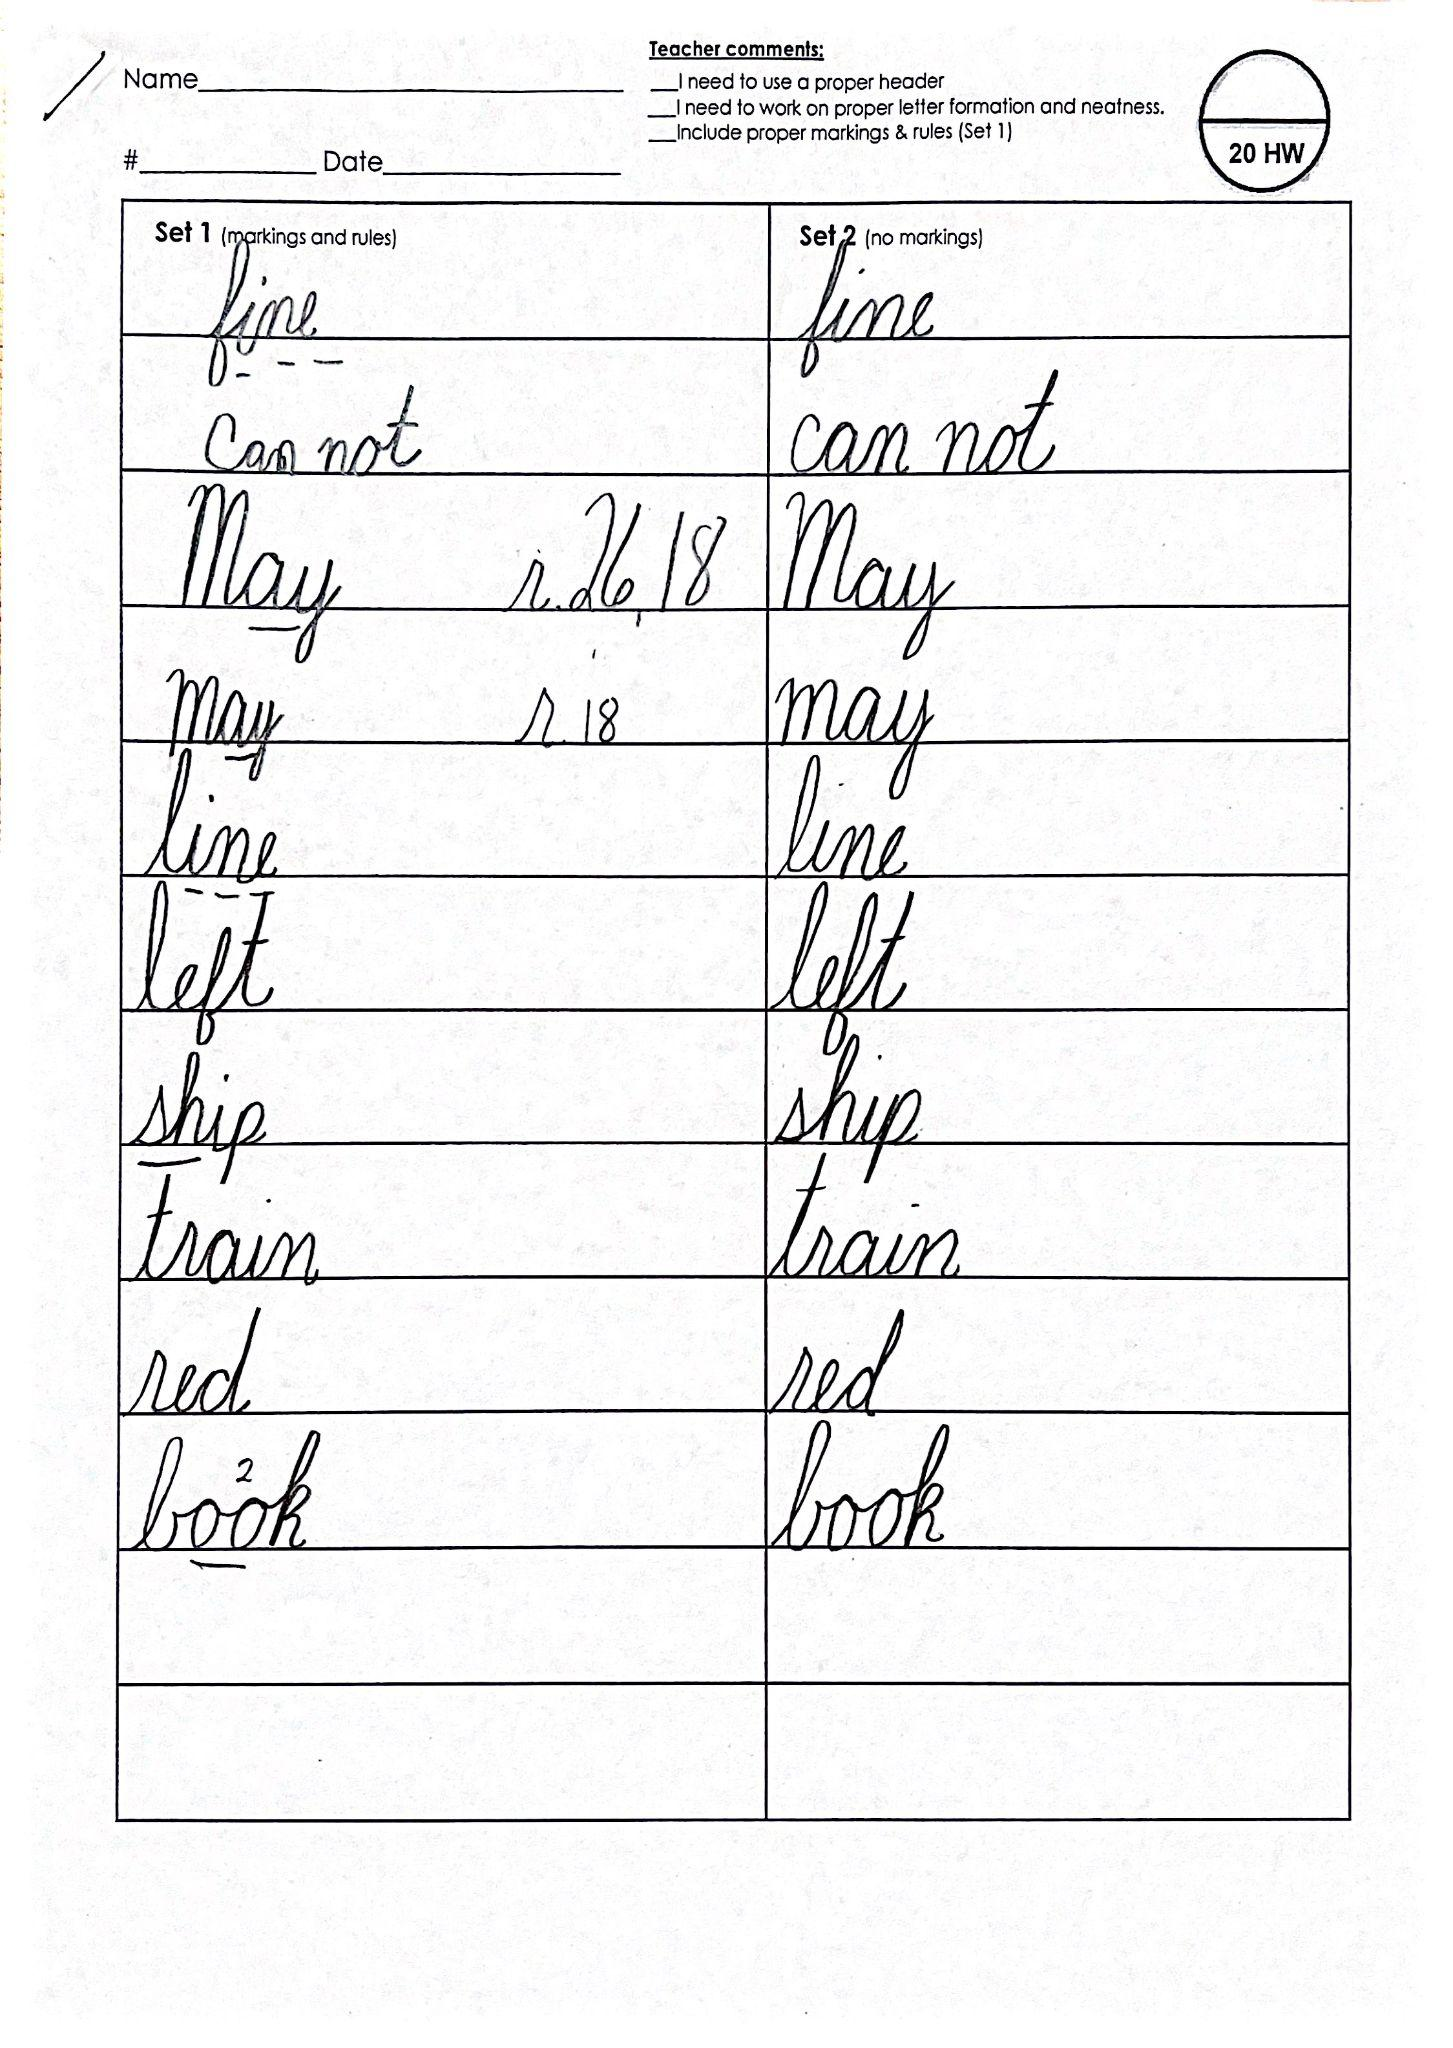 Teacher comments:
Name____ __I need to use a proper header
__I need to work on proper letter formation and neatness.
__Include proper markings & rules (Set 1)
#____ Date____ 20 HW
Set 1 (markings and rules) Set 2 (no markings)
fine fine
can not can not
May r. 26, 18 May
may r. 18 may
line line
left left
ship ship
train train
red red
book 2 book